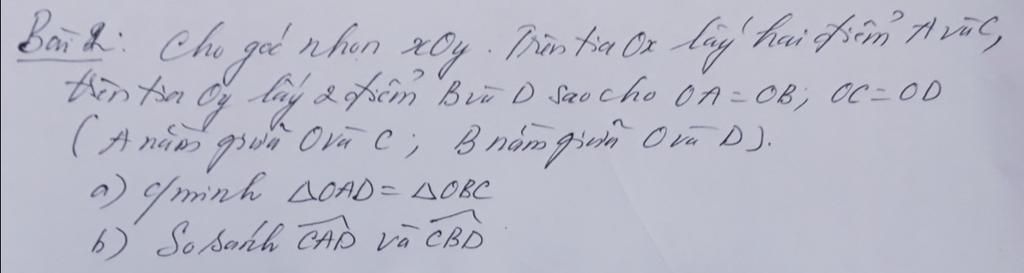 Bài 2: Cho góc nhọn xOy. Trên tia Ox lấy hai điểm A và C,
trên tia Oy lấy 2 điểm B và D sao cho OA = OB; OC = OD
(A nằm giữa O và C; B nằm giữa O và D).
a) c/minh △OAD = △OBC
b) So sánh \widehat{CAD} và \widehat{CBD}